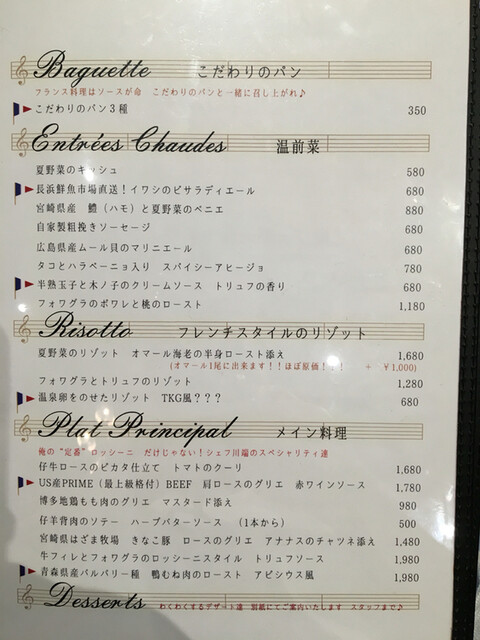 Baguette こだわりのパン
フランス料理はソースが命 こだわりのパンと一緒に召し上がれ♪
こだわりのパン3種 350
Entrées Chaudes 温前菜
夏野菜のキッシュ 580
長浜鮮魚市場直送！イワシのピサラディエール 680
宮崎県産 鱧（ハモ）と夏野菜のベニエ 880
自家製粗挽きソーセージ 680
広島県産ムール貝のマリニエール 680
タコとハラペーニョ入り スパイシーアヒージョ 780
半熟玉子と木ノ子のクリームソース トリュフの香り 680
フォワグラのポワレと桃のロースト 1,180
Risotto フレンチスタイルのリゾット
夏野菜のリゾット オマール海老の半身ロースト添え 1,680
(オマール1尾に出来ます！！ほぼ原価！！！ + ￥1,000)
フォワグラとトリュフのリゾット 1,280
温泉卵をのせたリゾット TKG風？？？ 680
Plat Principal メイン料理
俺の"定番"ロッシーニ だけじゃない！シェフ川端のスペシャリティ達
仔牛ロースのピカタ仕立て トマトのクーリ 1,680
US産PRIME（最上級格付）BEEF 肩ロースのグリエ 赤ワインソース 1,780
博多地鶏もも肉のグリエ マスタード添え 980
仔羊背肉のソテー ハーブバターソース （1本から） 500
宮崎県はざま牧場 きなこ豚 ロースのグリエ アナナスのチャツネ添え 1,480
牛フィレとフォワグラのロッシーニスタイル トリュフソース 1,980
青森県産バルバリー種 鴨むね肉のロースト アピシウス風 1,980
Desserts わくわくするデザート達 別紙にてご案内いたします スタッフまで♪